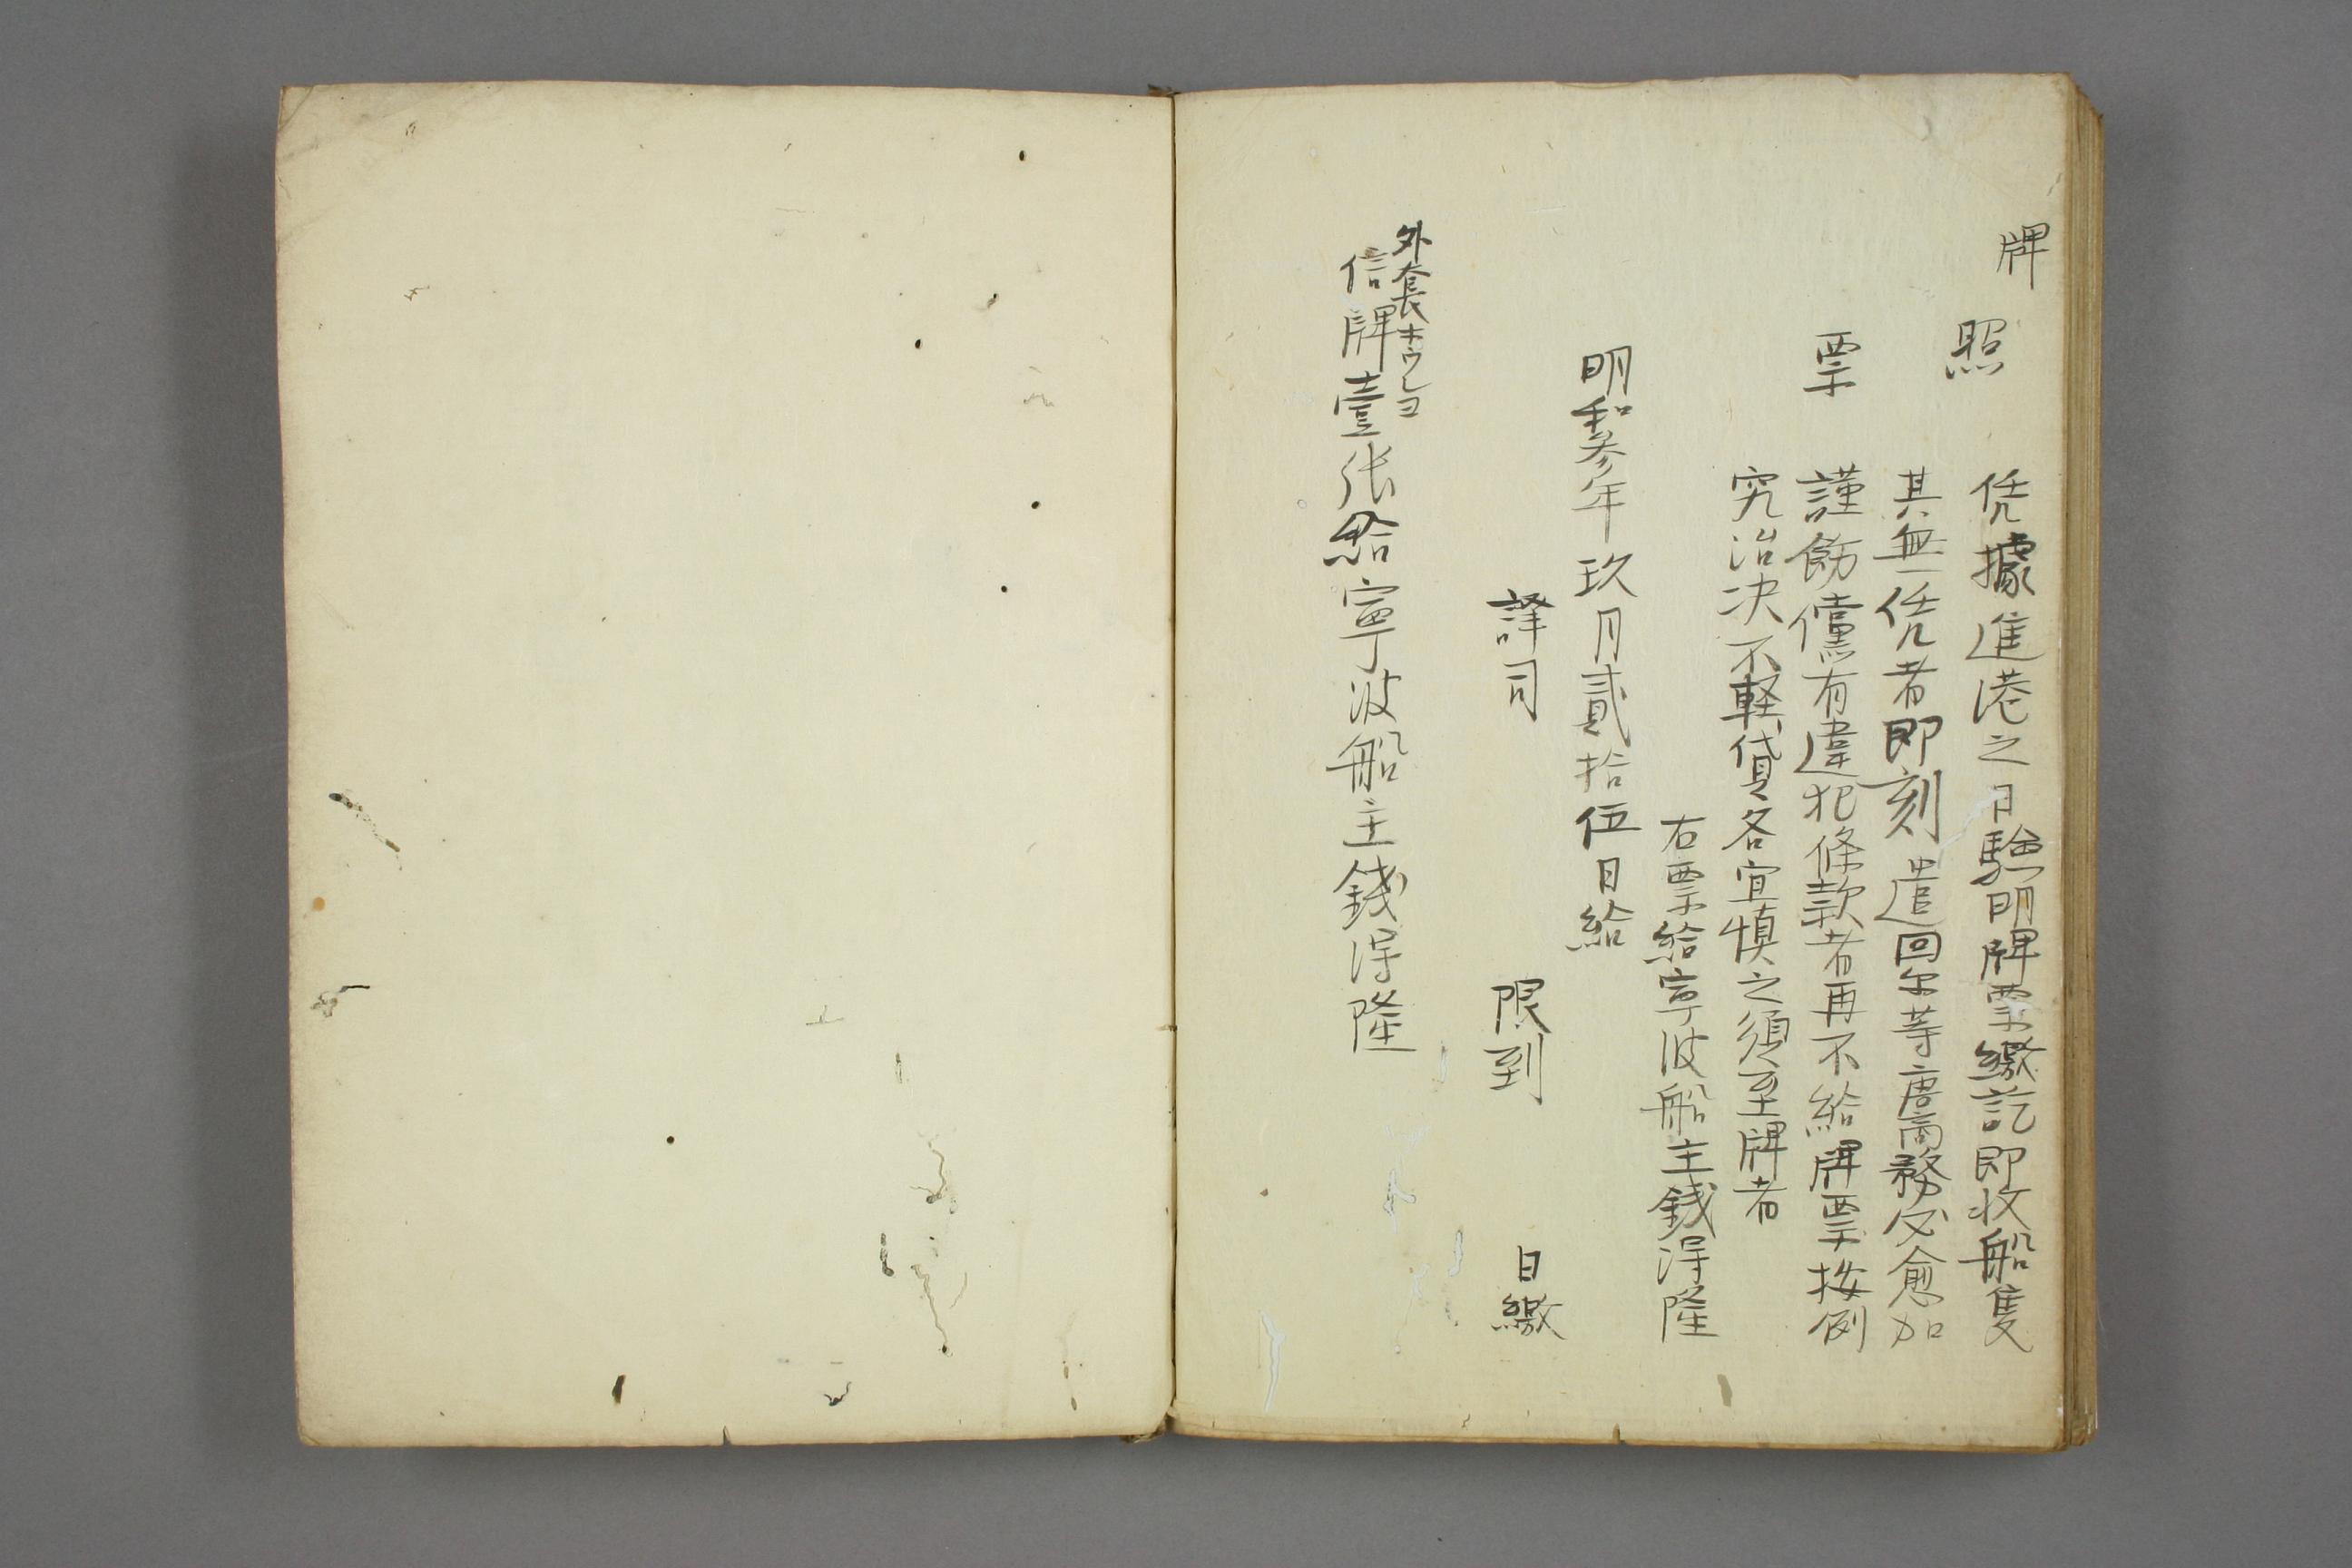 牌
照
凭據進港之日驗明牌票繳訖即收船隻
其無凭者即刻遣回尓等唐商務必愈加
票
謹飭儻有違犯條款者再不給牌票按例
究治决不軽貸各宜慎之須至牌者
右票給寧波船主錢得隆
明和参年玖月貳拾伍日給
譯司
限到 日繳
外套ホウシヨ
信牌壹张給寧波船主錢得隆